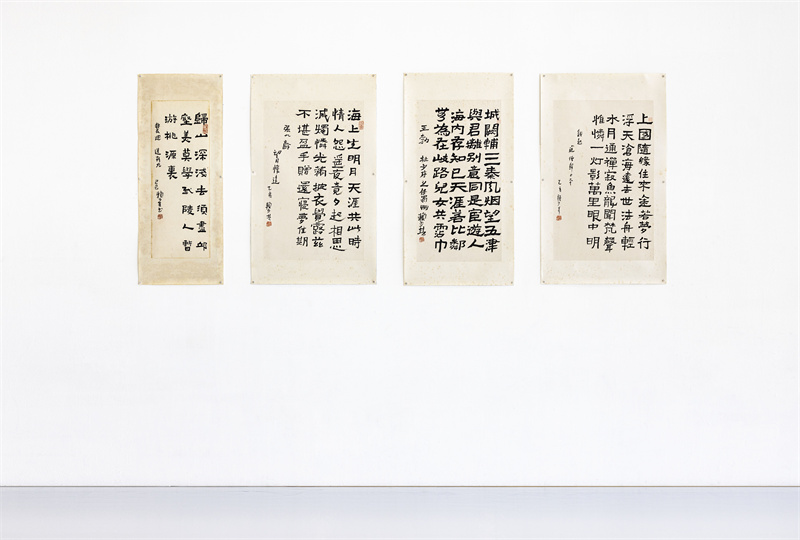 歸山深淺去須盡邱
壑美莫學武陵人暫
游桃源裏
裴迪 送崔九
海上生明月天涯共此時
情人怨遥夜竟夕起相思
滅燭憐光滿披衣覺露滋
不堪盈手贈還寢夢佳期
張九齡
望月懷遠
城闕輔三秦風烟望五津
與君離别意同是宦遊人
海内存知己天涯若比鄰
無為在歧路兒女共霑巾
王勃 杜少府之任蜀州
上國隨緣住來途若夢行
浮天滄海遠去世法舟輕
水月通禪寂魚龍聞梵聲
惟憐一灯影萬里眼中明
錢起
送僧歸日本